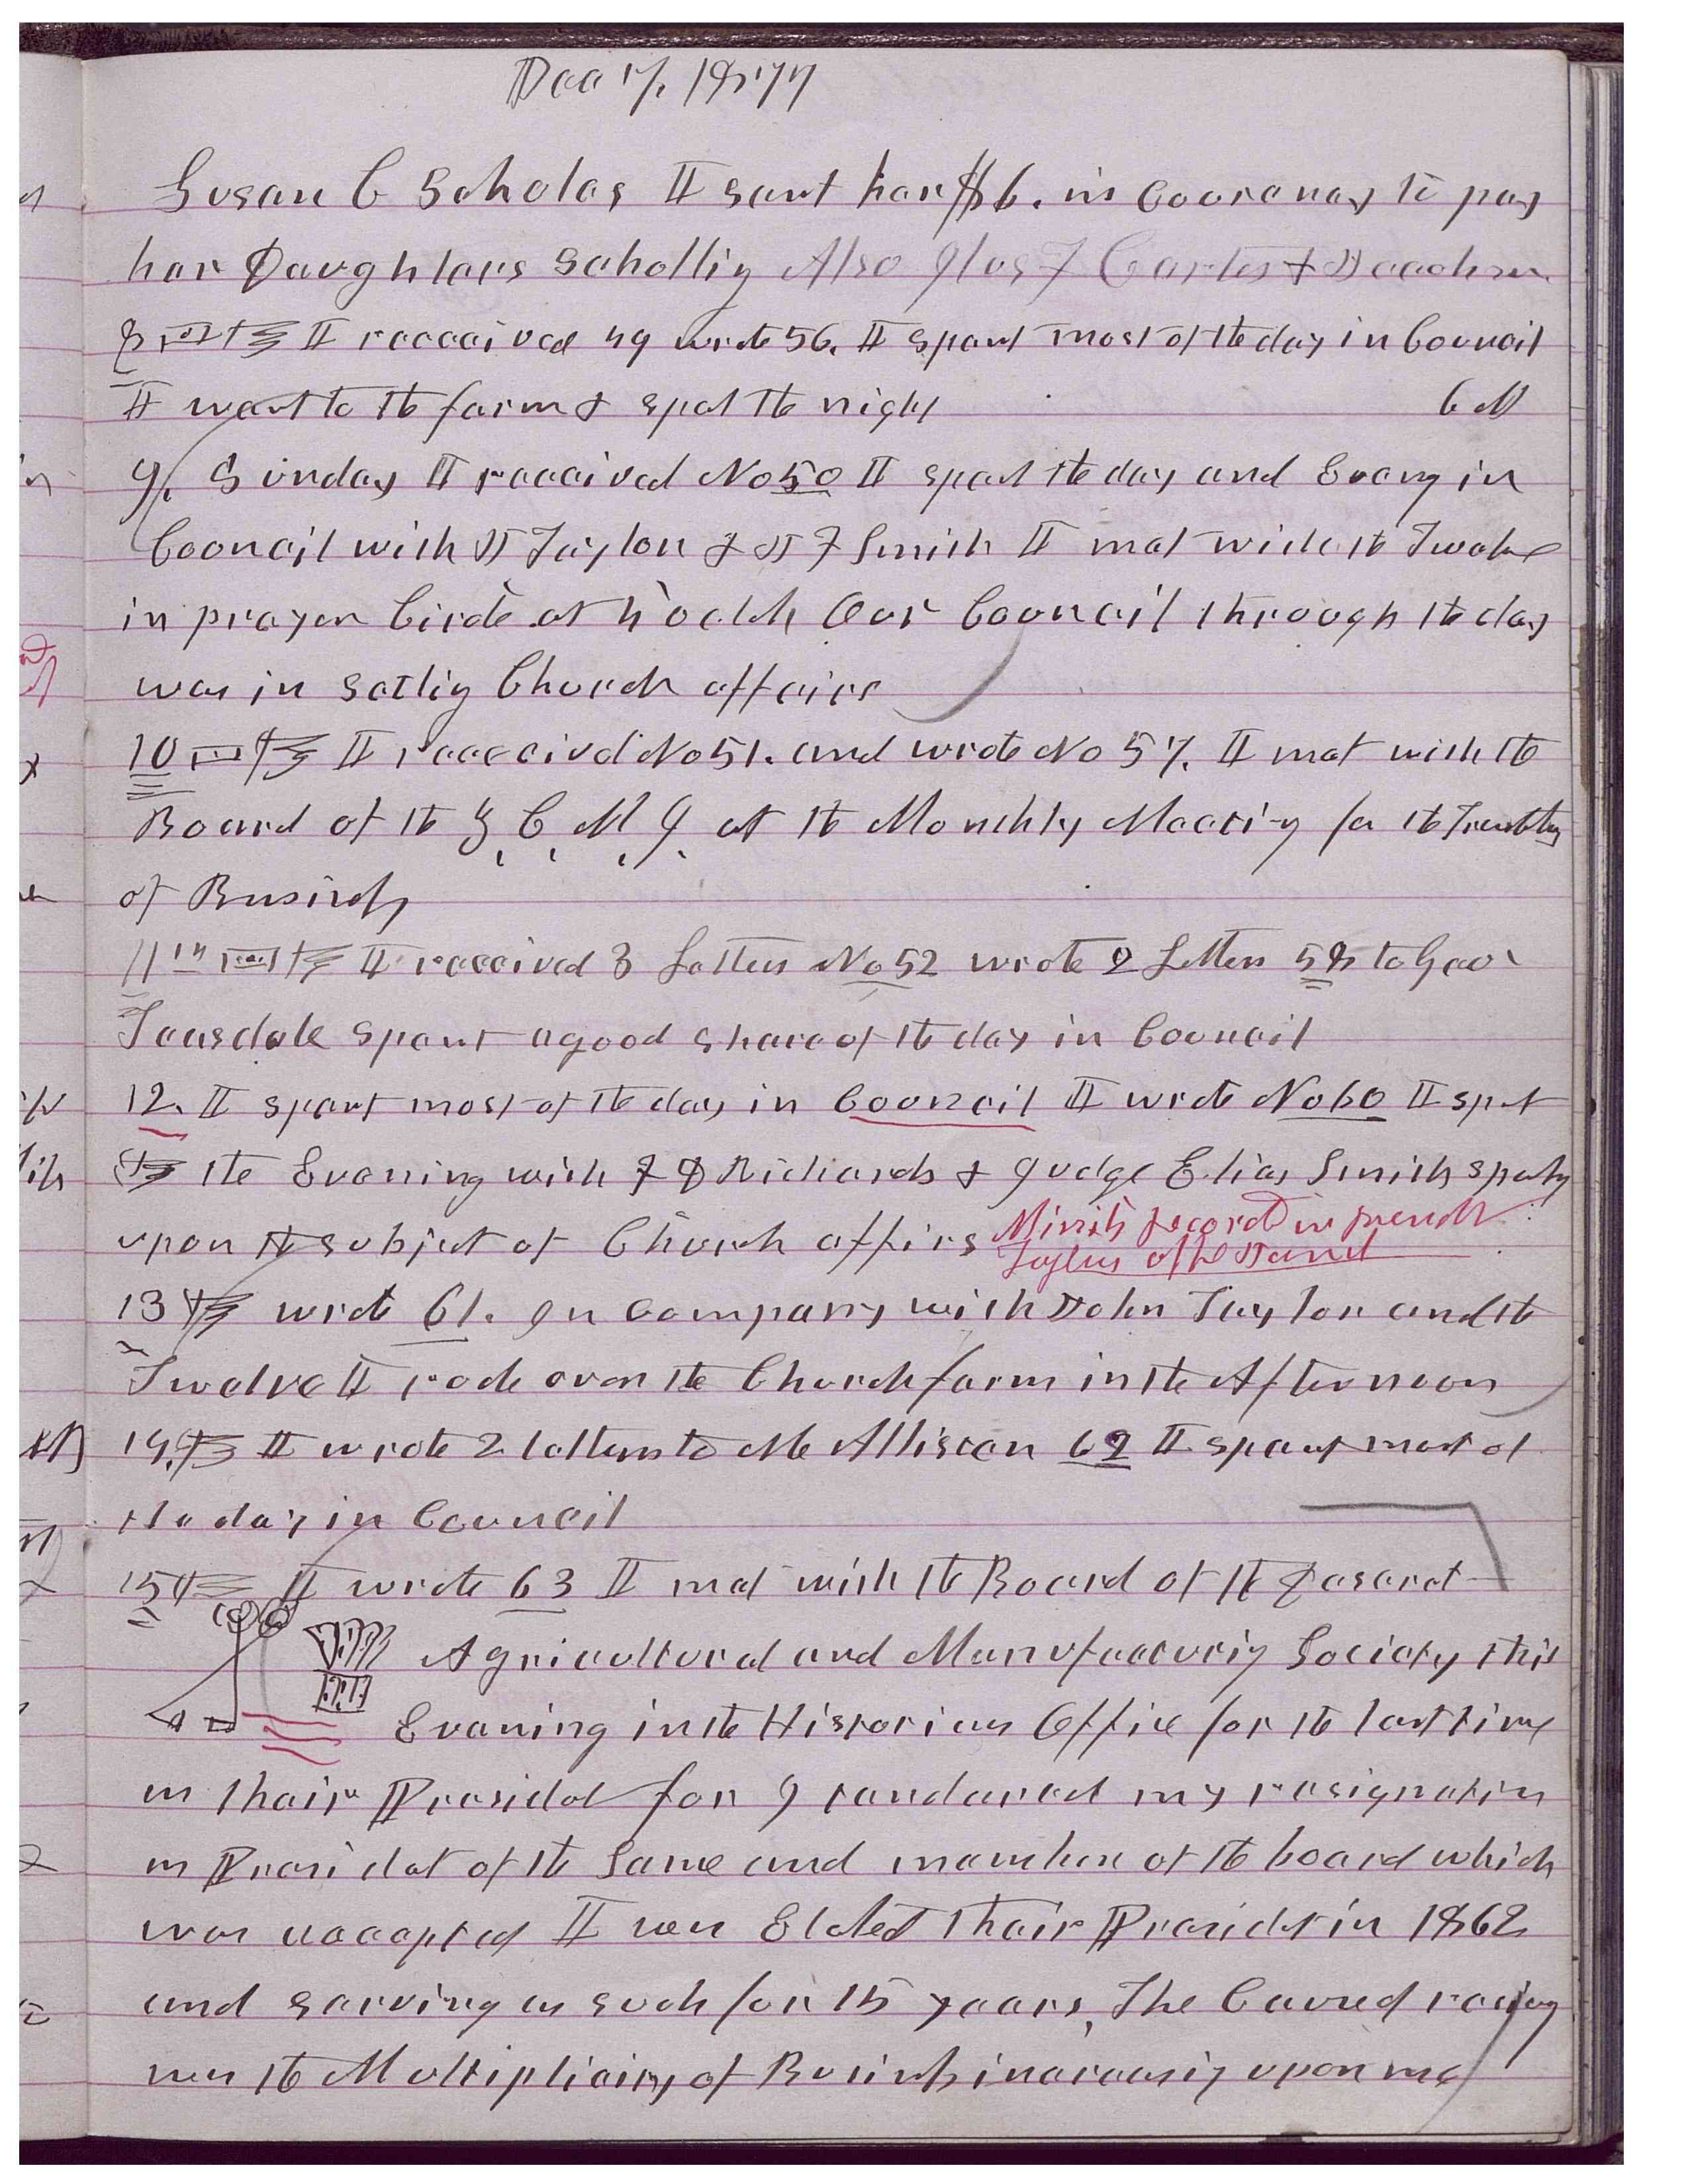 Dec 7, 1877
Susan C Scholes I sent her $6. in Courency to pay
her Daughters Schollig Also Glos F Carter & Jackson
8 I receeived 49 wrote 56. I spent most of the day in Council
I went to the farm & spet the night 6 M
9. Sunday I received No 50 I spet the day and Eveng in
Council with J Taylor & J F Smith I met with the Twelve
in prayer Circle at 4 oclok Our Council through the day
was in setlig Church affairs
10 I receeived No 51. and wrote No 57. I met with the
Board of the Z C M I at the Monthly Meetig for the
of Business
11th I received 3 Letters No 52 wrote 2 Letters 58 to Geo
Teasdale spent a good share of the day in Council
12. I spent most of the day in Council I wrote No 60 I spet
the Evening with F D Richards & Judge Elias Smith
upon the subjet of Church affirs
Taylors Hand
13 wrote 61. In Company with John Taylor and the
Twelve I rode over the Church farm in the Afternoon
14. I wrote 2 letters to Mc Allister 62 I spent most of
the day in Council
15 I wrote 63 I met with the Board of the Deseret
Agricultural and Manufacturig Society this
Evening in the Historians Office for the last time
as their Presidet for I tendered my resignation
as Presidet of the Same and member of the board which
was accepted I was Elated their Presidet in 1862
and serving as such for 15 years, The Caused
was the Multiplicity of Business increasig upon me